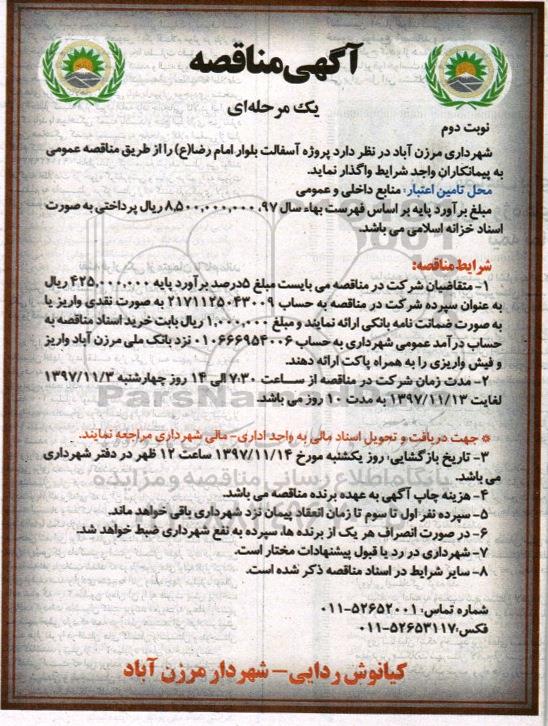 آگهی مناقصه
یک مرحله‌ای
نوبت دوم
شهرداری مرزن آباد در نظر دارد پروژه آسفالت بلوار امام رضا(ع) را از طریق مناقصه عمومی
به پیمانکاران واجد شرایط واگذار نماید.
محل تامین اعتبار: منابع داخلی و عمومی
مبلغ برآورد پایه بر اساس فهرست بهاء سال ۹۷، ۸,۵۰۰,۰۰۰,۰۰۰ ریال پرداختی به صورت
اسناد خزانه اسلامی می باشد.
شرایط مناقصه:
۱- متقاضیان شرکت در مناقصه می بایست مبلغ ۵درصد برآورد پایه ۴۲۵,۰۰۰,۰۰۰ ریال
به عنوان سپرده شرکت در مناقصه به حساب ۲۱۷۱۱۲۵۰۴۳۰۰۹ به صورت نقدی واریز یا
به صورت ضمانت نامه بانکی ارائه نمایند و مبلغ ۱,۰۰۰,۰۰۰ ریال بابت خرید اسناد مناقصه به
حساب درآمد عمومی شهرداری به حساب ۰۱۰۶۶۶۹۵۴۰۰۶ نزد بانک ملی مرزن آباد واریز
و فیش واریزی را به همراه پاکت ارائه دهند.
۲- مدت زمان شرکت در مناقصه از ساعت ۷:۳۰ الی ۱۴ روز چهارشنبه ۱۳۹۷/۱۱/۳
لغایت ۱۳۹۷/۱۱/۱۳ به مدت ۱۰ روز می باشد.
ParsNamad
* جهت دریافت و تحویل اسناد مالی به واحد اداری- مالی شهرداری مراجعه نمایند.
۳- تاریخ بازگشایی: روز یکشنبه مورخ ۱۳۹۷/۱۱/۱۴ ساعت ۱۲ ظهر در دفتر شهرداری
می باشد.
پایگاه اطلاع رسانی مناقصه و مزایده
۴- هزینه چاپ آگهی به عهده برنده مناقصه می باشد.
۵- سپرده نفر اول تا سوم تا زمان انعقاد پیمان نزد شهرداری باقی خواهد ماند.
۶- در صورت انصراف هر یک از برنده ها، سپرده به نفع شهرداری ضبط خواهد شد.
۷- شهرداری در رد یا قبول پیشنهادات مختار است.
۸- سایر شرایط در اسناد مناقصه ذکر شده است.
شماره تماس: ۵۲۶۵۲۰۰۱-۰۱۱
فکس: ۵۲۶۵۳۱۱۷-۰۱۱
کیانوش ردایی- شهردار مرزن آباد